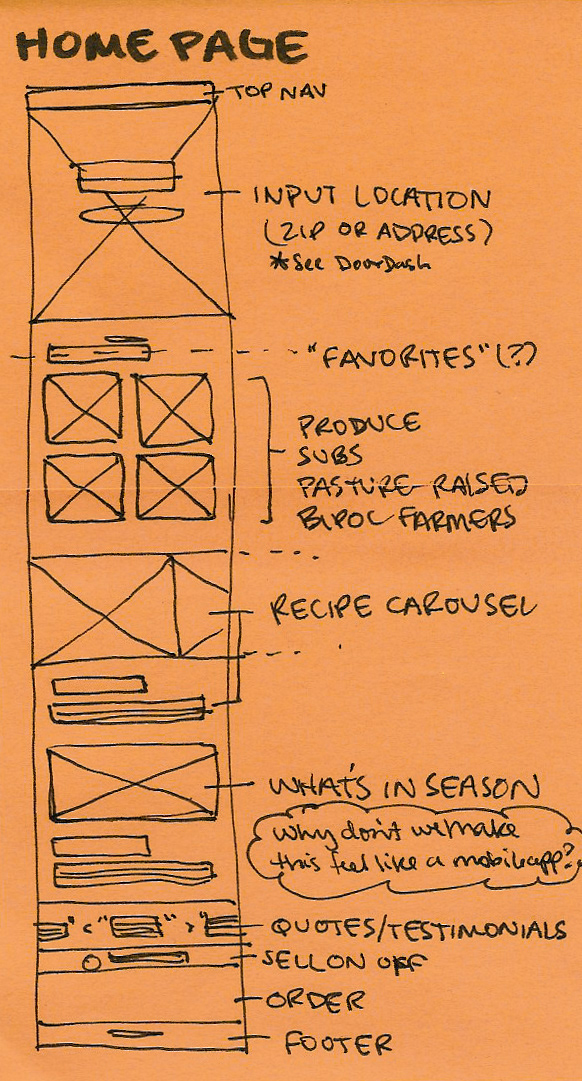 HOME PAGE
TOP NAV
INPUT LOCATION
(ZIP OR ADDRESS)
*See DoorDash
"FAVORITES" (?)
PRODUCE
SUBS
PASTURE-RAISED
BIPOC FARMERS
RECIPE CAROUSEL
WHAT'S IN SEASON
why don't we make
this feel like a mobile app?
" < " " > "
QUOTES/TESTIMONIALS
SELL ON OFF
ORDER
FOOTER